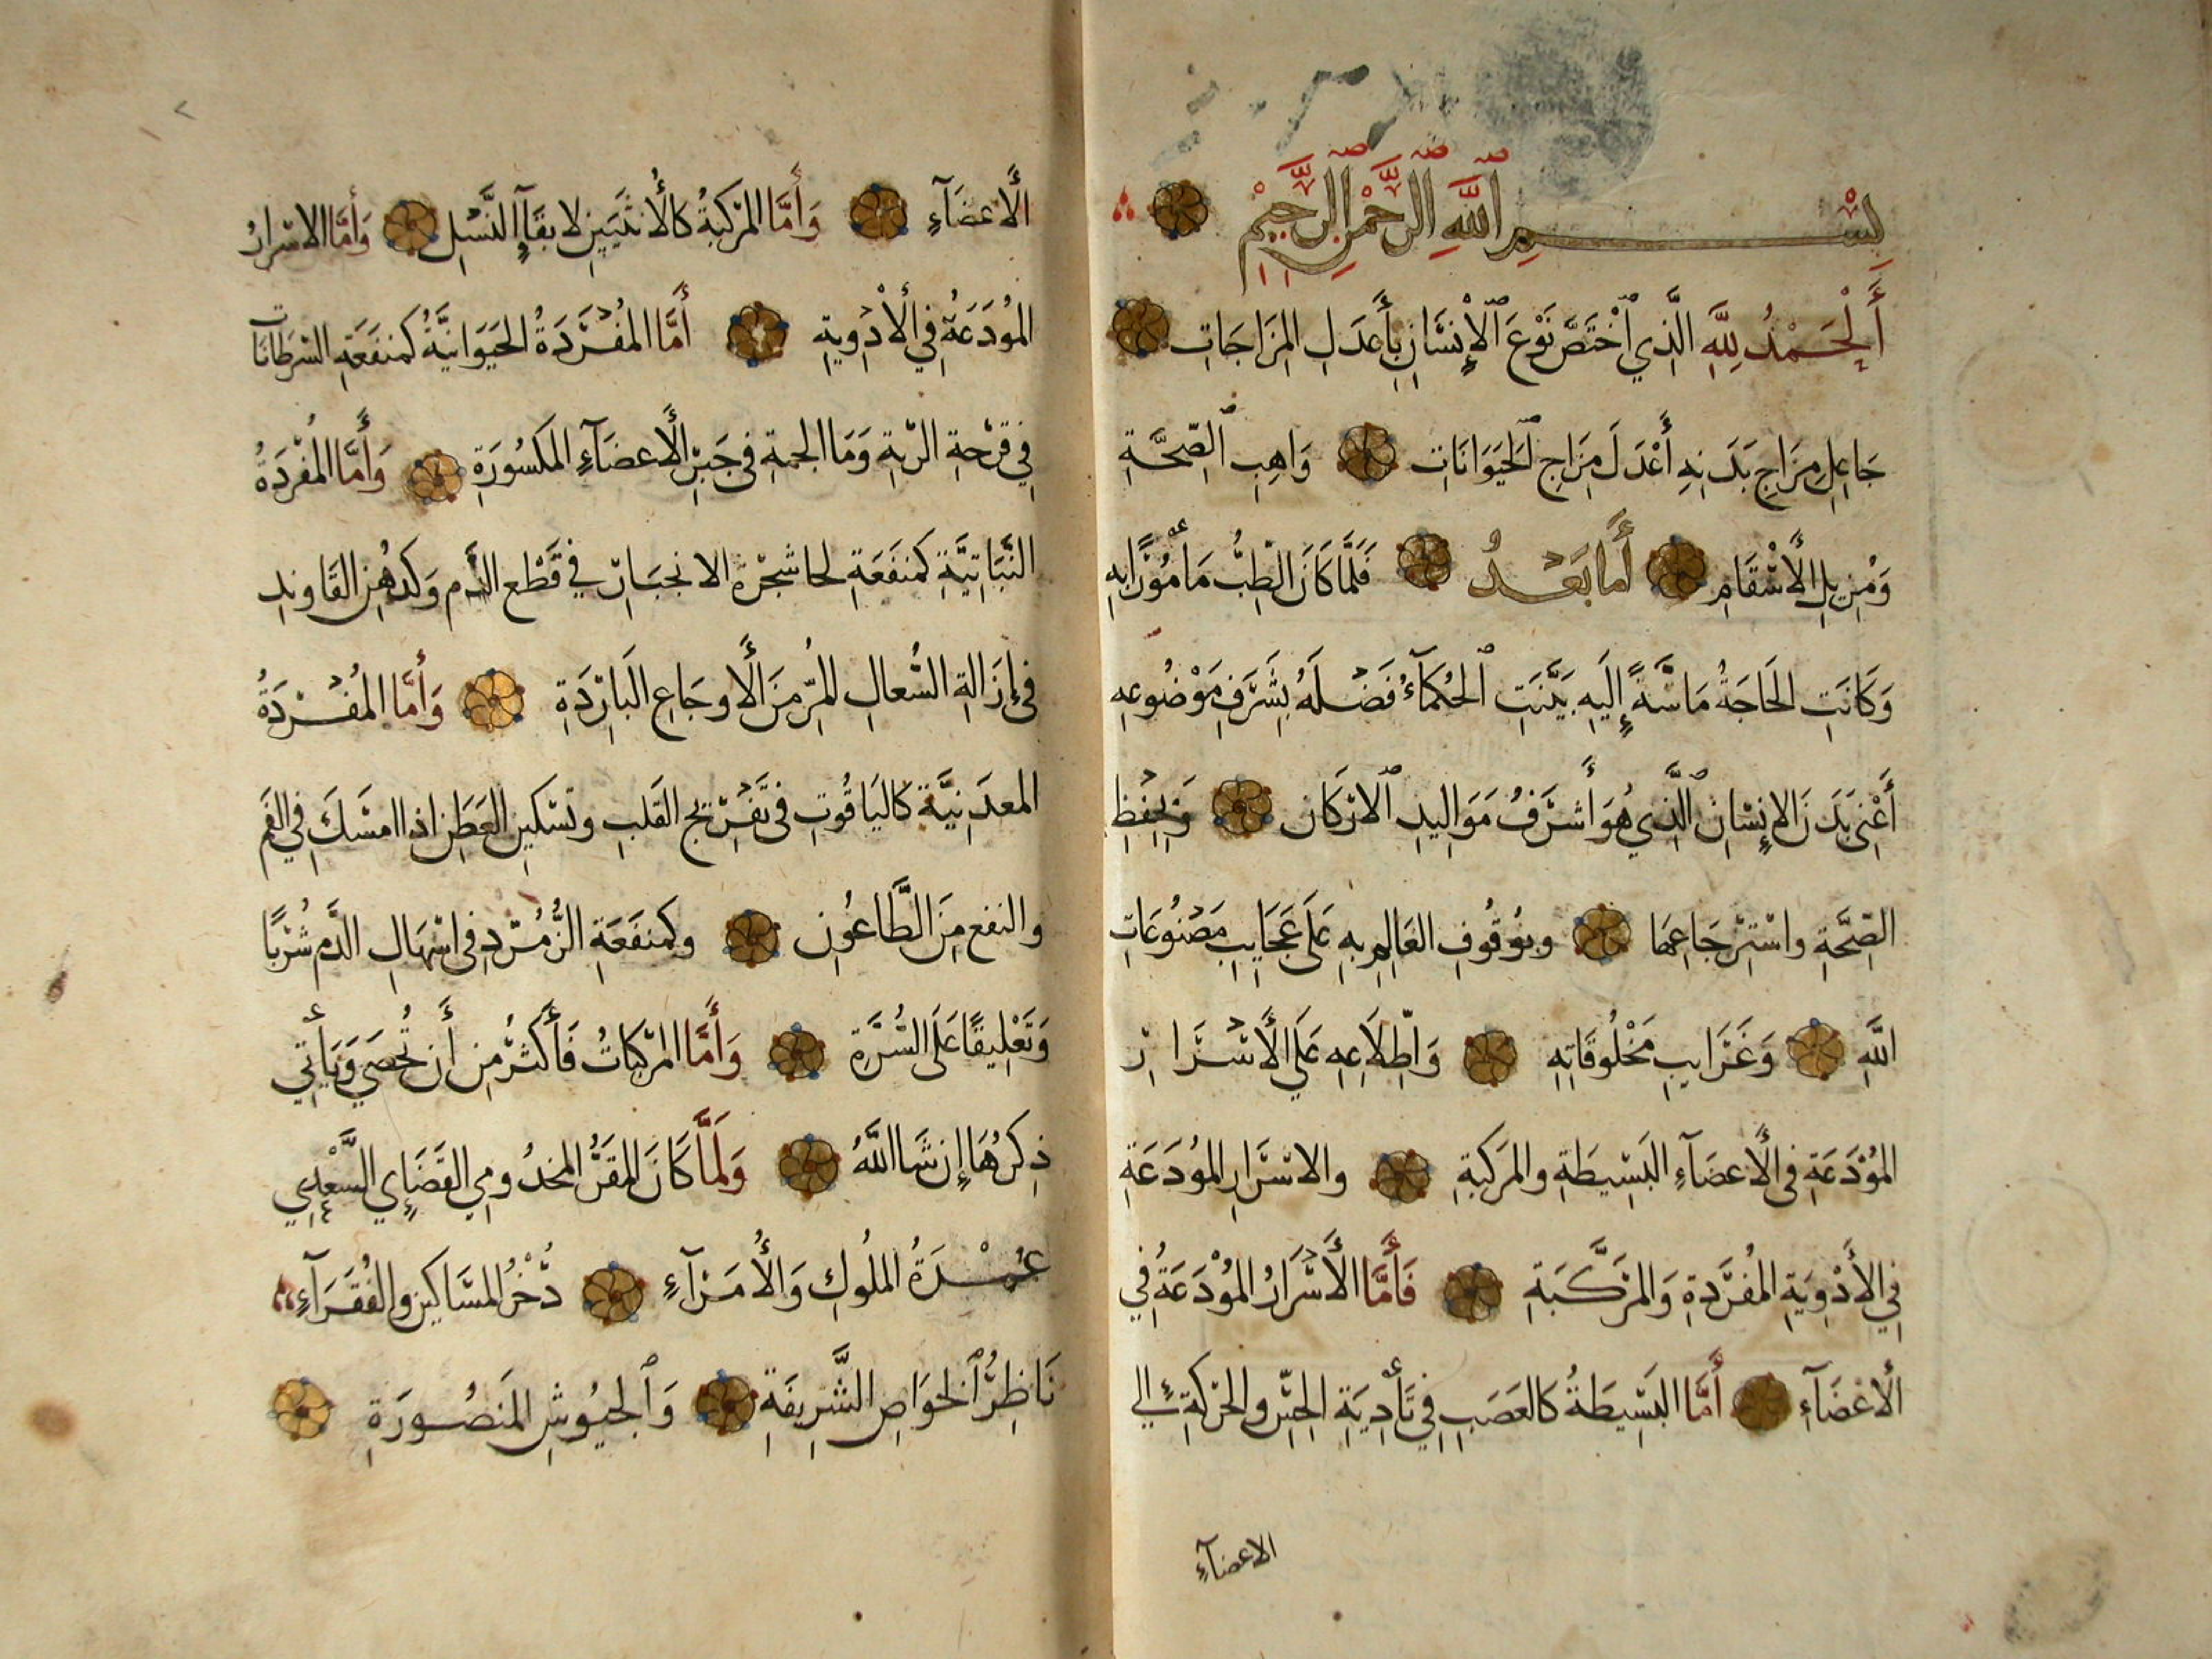 بسم الله الرحمن الرحيم
أَلْحَمْدُ لِلَّهِ الَّذِي اخْتَصَّ نَوْعَ الْإِنْسَانِ بِأَعْدَلِ المِزَاجَاتِ
جَاعِلِ مِزَاجِ بَدَنِهِ أَعْدَلَ مِزَاجِ الحَيَوَانَاتِ وَاهِبِ الصِّحَّةِ
وَمُزِيلِ الأَسْقَامِ أَما بَعْدُ فَلَمَّا كَانَ الطِّبُّ مَأْمُوْرًا بِهِ
وَكَانَتِ الحَاجَةُ مَاسَّةً إِلَيهِ بَيَّنَتِ الحُكَمَآءُ فَضْلَهُ بِشَرَفِ مَوْضُوعِهِ
أَعْنِى بَدَنَ الإِنْسَانِ الَّذِي هُوَ أَشْرَفُ مَوَالِيدِ الارْكَانِ وَبِحِفْظِ
الصِّحَّةِ واسْتِرْجَاعِهَا وبوُقُوفِ العَالِمِ بِهِ عَلَى عَجَايِبِ مَصْنُوعَاتِ
اللَّهِ وَغَرَايِبِ مَخْلُوقَاتِهِ وَاطِّلَاعِهِ عَلَي الأَسْرَارِ
المُوْدَعَةِ فى الأَعضَآءِ البَسِيطَةِ والمرَكبَةِ والاسْرَارِ المُودَعَةِ
فِي الأَدْوِيَةِ المُفْرَدةِ وَالمُرَكَّبَةِ فَأَمَّا الأَسْرَارُ المُوْدَعَةُ فِي
الأَعْضَآءِ أَمَّا البَسِيطَةُ كَالعَصَبِ فِي تَأْدِيَةِ الحِسِّ والحَرَكَةِ إِلي
الاعضآءِ
الأَعضَآءِ وَأَمَّا المرَكبَةُ كَالأُنثَيَيْنِ لابقَآءِ النَّسْلِ وَأَمَّا الاسْرارُ
المُوُدَعَةُ فِي الأَدْوِيةِ أَمَّا المُفْرَدَةُ الحَيَوَانِيَّةُ كَمنفَعَةِ السَّرطَانَاتِ
فِي قَرْحَةِ الرّيةِ وَمَا الجمةِ فى جَبْرِ الأَعضَآءِ المَكسُورَةِ وَأَمَّا المُفْرَدَةُ
النَّبَاتِيَّةِ كَمنفَعَةِ لحا شجَرْة الانجبَارِ في قَطْعِ الدَّمِ وَكَدهْنِ القَاوِندِ
فى إِزَالةِ السُّعالِ المُزمِن الأَوجَاعِ البَارِدَةِ وَأَمَّا المُفْرَدَةُ
المعدَنِيَّة كَاليَاقُوتِ فى تَفْرِيحِ القَلبِ وتَسْكينِ العَطَشِ اذا امسَكَ في الفَم
والنفع مِنَ الطَّاعُونِ وكَمنفَعَةِ الزُّمُرُّدِ فى اسْهَالِ الدَّم شُرْبًا
وَتَعْلِيقًا عَلَى السُّرَّةِ وَأَمَّا المرَكبَاتُ فَأَكْثَرُ مِن أَن تُحْصَي وَيَأْتِي
ذِكرُهَا إِن شَا اللَّهُ وَلَمَّا كَانَ المقَرُّ المخدُومي القَضَايِي السَّعْدِي
عُمْدَةُ المُلُوكِ وَالأُمَرَآءِ ذُخْرُ المَسَاكينِ والفُقَرَآءِ
نَاظِرُ الخوَاصِ الشَّرِيفَةِ وَالجيُوشِ المَنصُورَةِ